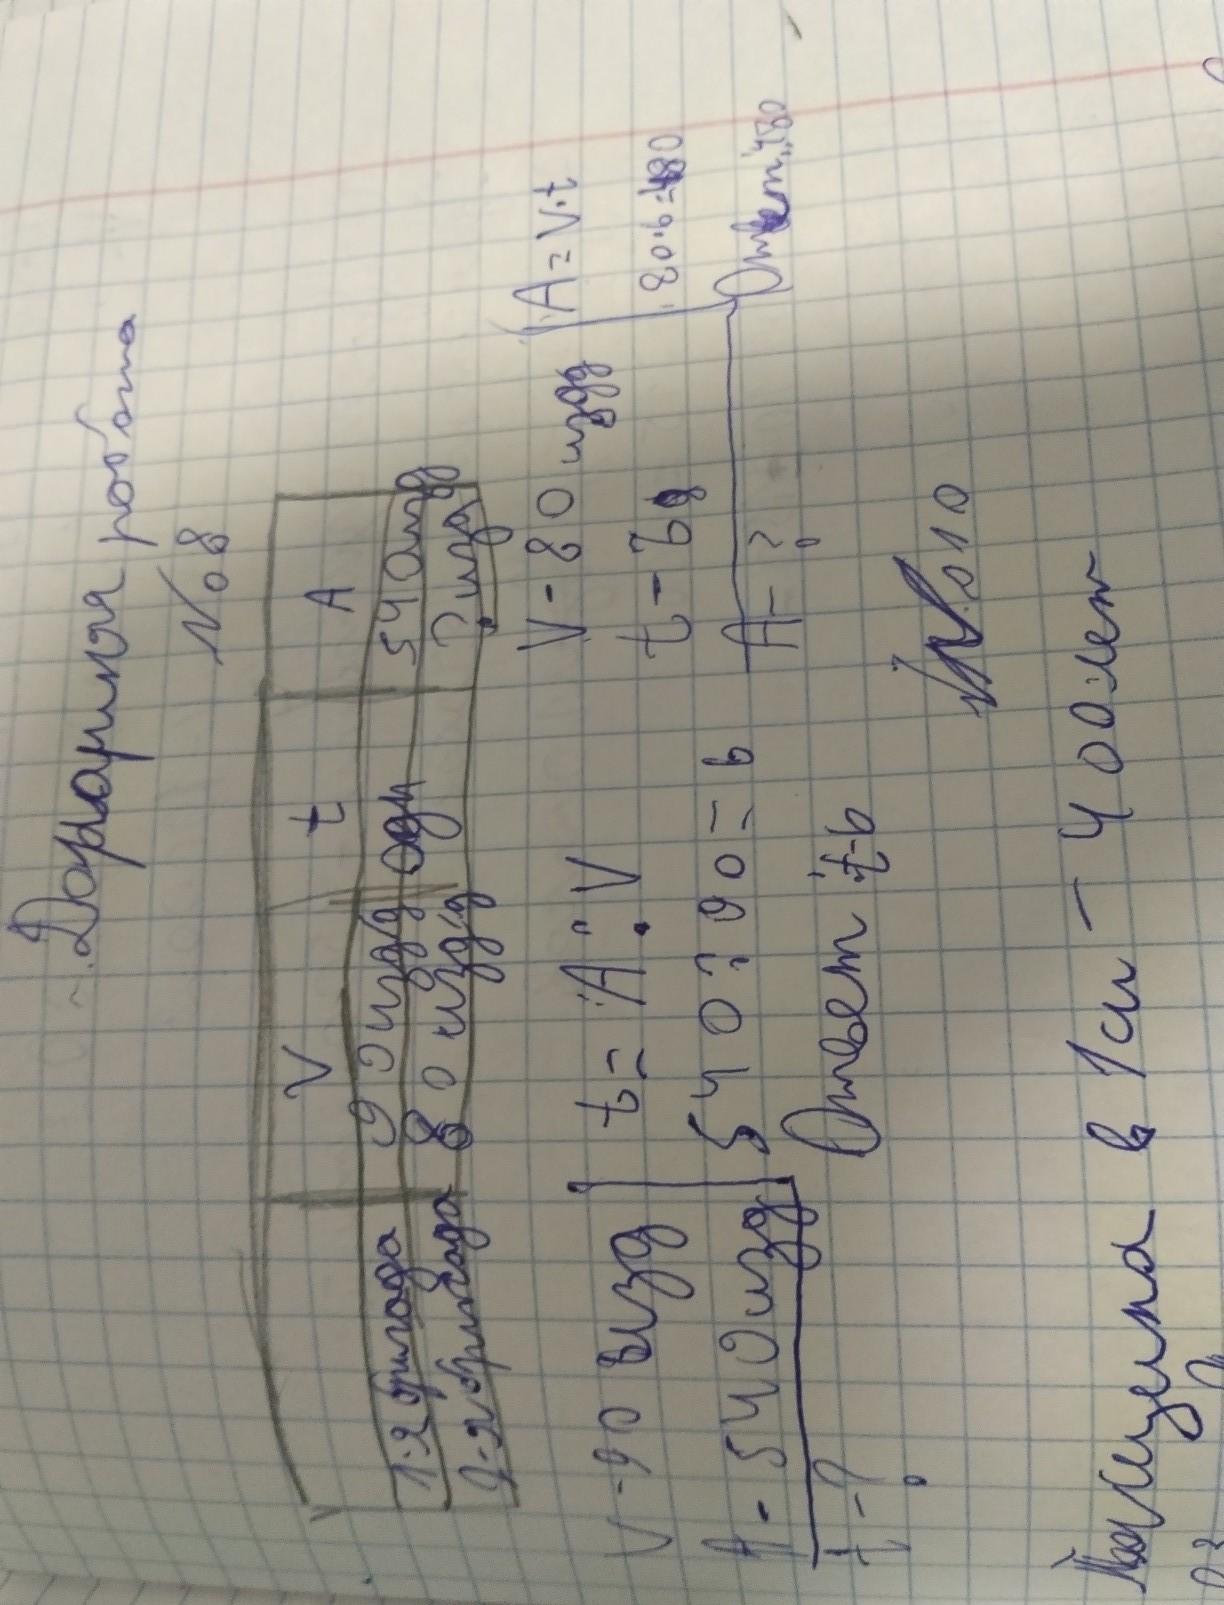 Домашняя работа
№8
V t A
1-я бригада 90 изд одн 540 изд
2-я бригада 80 изд ? изд
V - 90 изд t = A : V
A - 540 изд 540 : 90 = 6
t - ? Ответ: t-6
V - 80 изд A = V·t
t - 6 80·6=480
A - ? Ответ: 480
№10
в 1 см - 400 лет